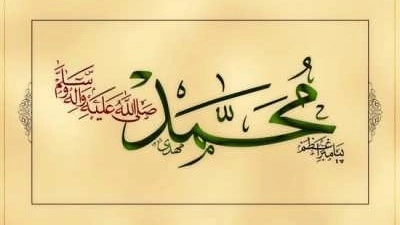 پیامبر اعظم
محمد
صلی الله علیه وآله وسلم
مهدی